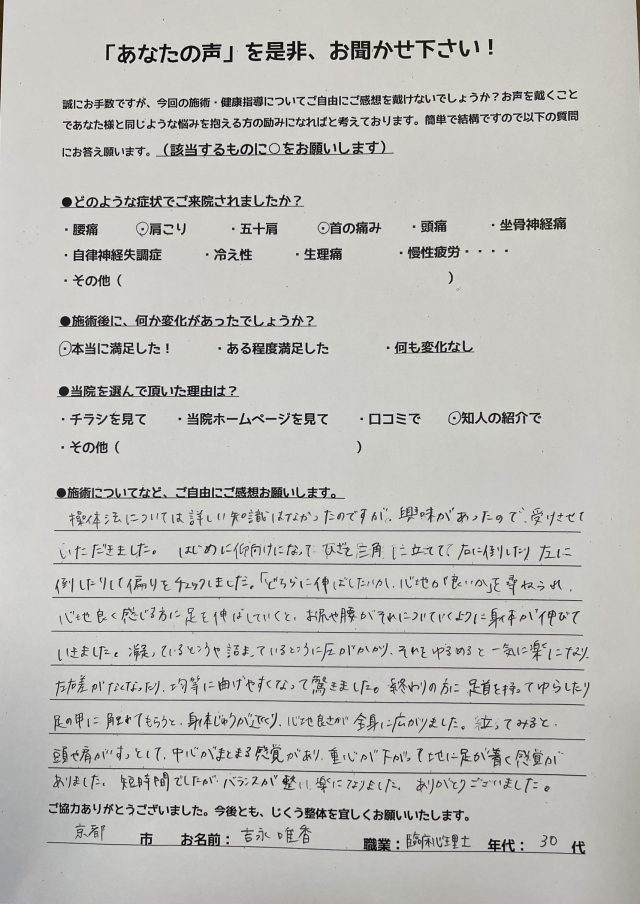 「あなたの声」を是非、お聞かせ下さい！
誠にお手数ですが、今回の施術・健康指導についてご自由にご感想を戴けないでしょうか？お声を戴くこと
であなた様と同じような悩みを抱える方の励みになればと考えております。簡単で結構ですので以下の質問
にお答え願います。（該当するものに○をお願いします）
●どのような症状でご来院されましたか？
・腰痛 ・肩こり ・五十肩 ・首の痛み ・頭痛 ・坐骨神経痛
・自律神経失調症 ・冷え性 ・生理痛 ・慢性疲労・・・・
・その他（ ）
●施術後に、何か変化があったでしょうか？
・本当に満足した！ ・ある程度満足した ・何も変化なし
●当院を選んで頂いた理由は？
・チラシを見て ・当院ホームページを見て ・口コミで ・知人の紹介で
・その他（ ）
●施術についてなど、ご自由にご感想お願いします。
操体法については詳しい知識はなかったのですが、興味があったので、受けさせて
いただきました。はじめに仰向けになって ひざを三角に立てて、右に倒したり 左に
倒したりして偏りをチェックしました。「どちらに伸ばしたいか、心地が良いか」を尋ねられ、
心地良く感じる方に足を伸ばしていくと、お尻や腰がそれについていくように身体が伸びて
いきました。凝っているところや詰まっているところに圧がかかり、それをゆるめると一気に楽になり、
左右差がなくなったり、均等に曲げやすくなって驚きました。終わりの方に足首を持ってゆらしたり
足の甲に触れてもらうと、身体じゅうが 心地良さが全身に広がりました。立ってみると、
頭や肩がすっとして、中心がまとまる感覚があり、重心が下がって地に足が着く感覚が
ありました。短時間でしたが、バランスが整い、楽になりました。ありがとうございました。
ご協力ありがとうございました。今後とも、じくう整体を宜しくお願いいたします。
京都 市 お名前：吉永 唯香 職業：臨床心理士 年代：30 代